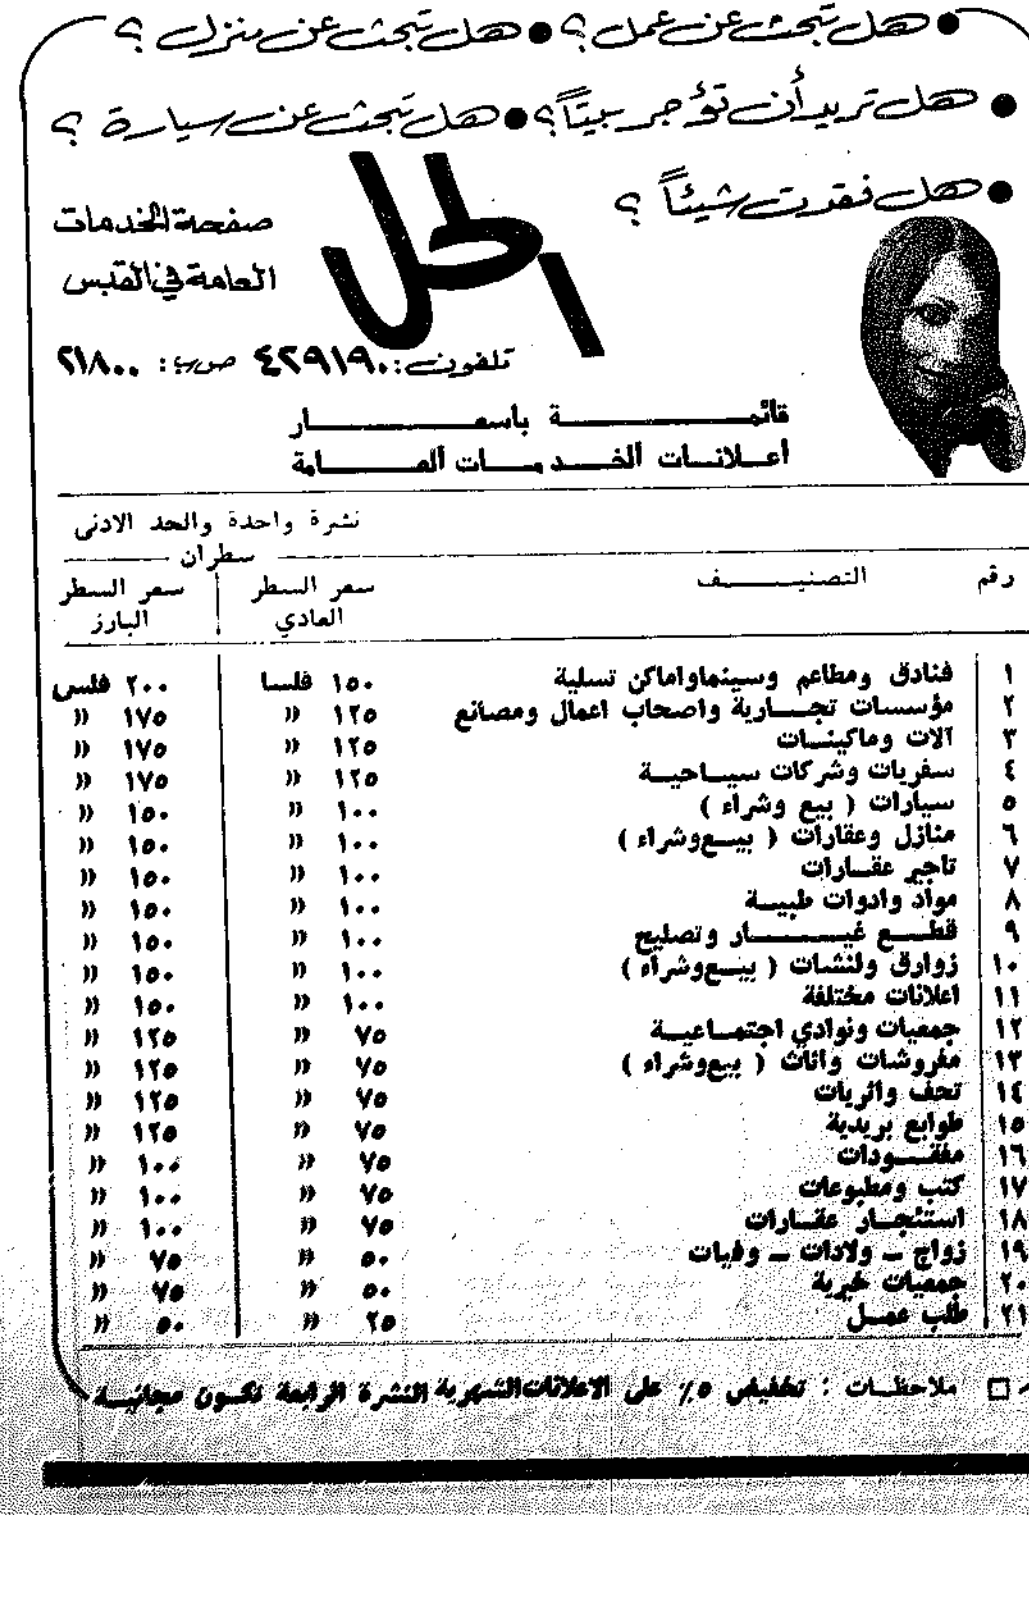 ● هل تبحث عن عمل ؟ ● هل تبحث عن منزل ؟
● هل تريد أن تؤجر بيتاً ؟ ● هل تبحث عن سيارة ؟
● هل فقدت شيئاً ؟
الحل
صفحة الخدمات
العامة في القبس
تلفون : ٤٢٩١٩٠ ص.ب : ٢١٨٠٠
قائمة باسعار
اعلانات الخدمات العامة
نشرة واحدة والحد الادنى
سطران
رقم التصنيف سعر السطر العادي سعر السطر البارز
١ فنادق ومطاعم وسينما واماكن تسلية ١٥٠ فلسا ٢٠٠ فلس
٢ مؤسسات تجارية واصحاب اعمال ومصانع ١٢٥ » ١٧٥ »
٣ آلات وماكينات ١٢٥ » ١٧٥ »
٤ سفريات وشركات سياحية ١٢٥ » ١٧٥ »
٥ سيارات ( بيع وشراء ) ١٠٠ » ١٥٠ »
٦ منازل وعقارات ( بيع وشراء ) ١٠٠ » ١٥٠ »
٧ تاجير عقارات ١٠٠ » ١٥٠ »
٨ مواد وادوات طبية ١٠٠ » ١٥٠ »
٩ قطع غيار وتصليح ١٠٠ » ١٥٠ »
١٠ زوارق ولنشات ( بيع وشراء ) ١٠٠ » ١٥٠ »
١١ اعلانات مختلفة ١٠٠ » ١٥٠ »
١٢ جمعيات ونوادي اجتماعية ٧٥ » ١٢٥ »
١٣ مفروشات واثاث ( بيع وشراء ) ٧٥ » ١٢٥ »
١٤ تحف واثريات ٧٥ » ١٢٥ »
١٥ طوابع بريدية ٧٥ » ١٢٥ »
١٦ مفقودات ٧٥ » ١٠٠ »
١٧ كتب ومطبوعات ٧٥ » ١٠٠ »
١٨ استئجار عقارات ٧٥ » ١٠٠ »
١٩ زواج ـ ولادات ـ وفيات ٥٠ » ٧٥ »
٢٠ جمعيات خيرية ٥٠ » ٧٥ »
٢١ طلب عمل ٢٥ » ٥٠ »
□ ملاحظات : تخفيض ٥٪ على الاعلانات الشهرية النشرة الرابعة تكون مجانية